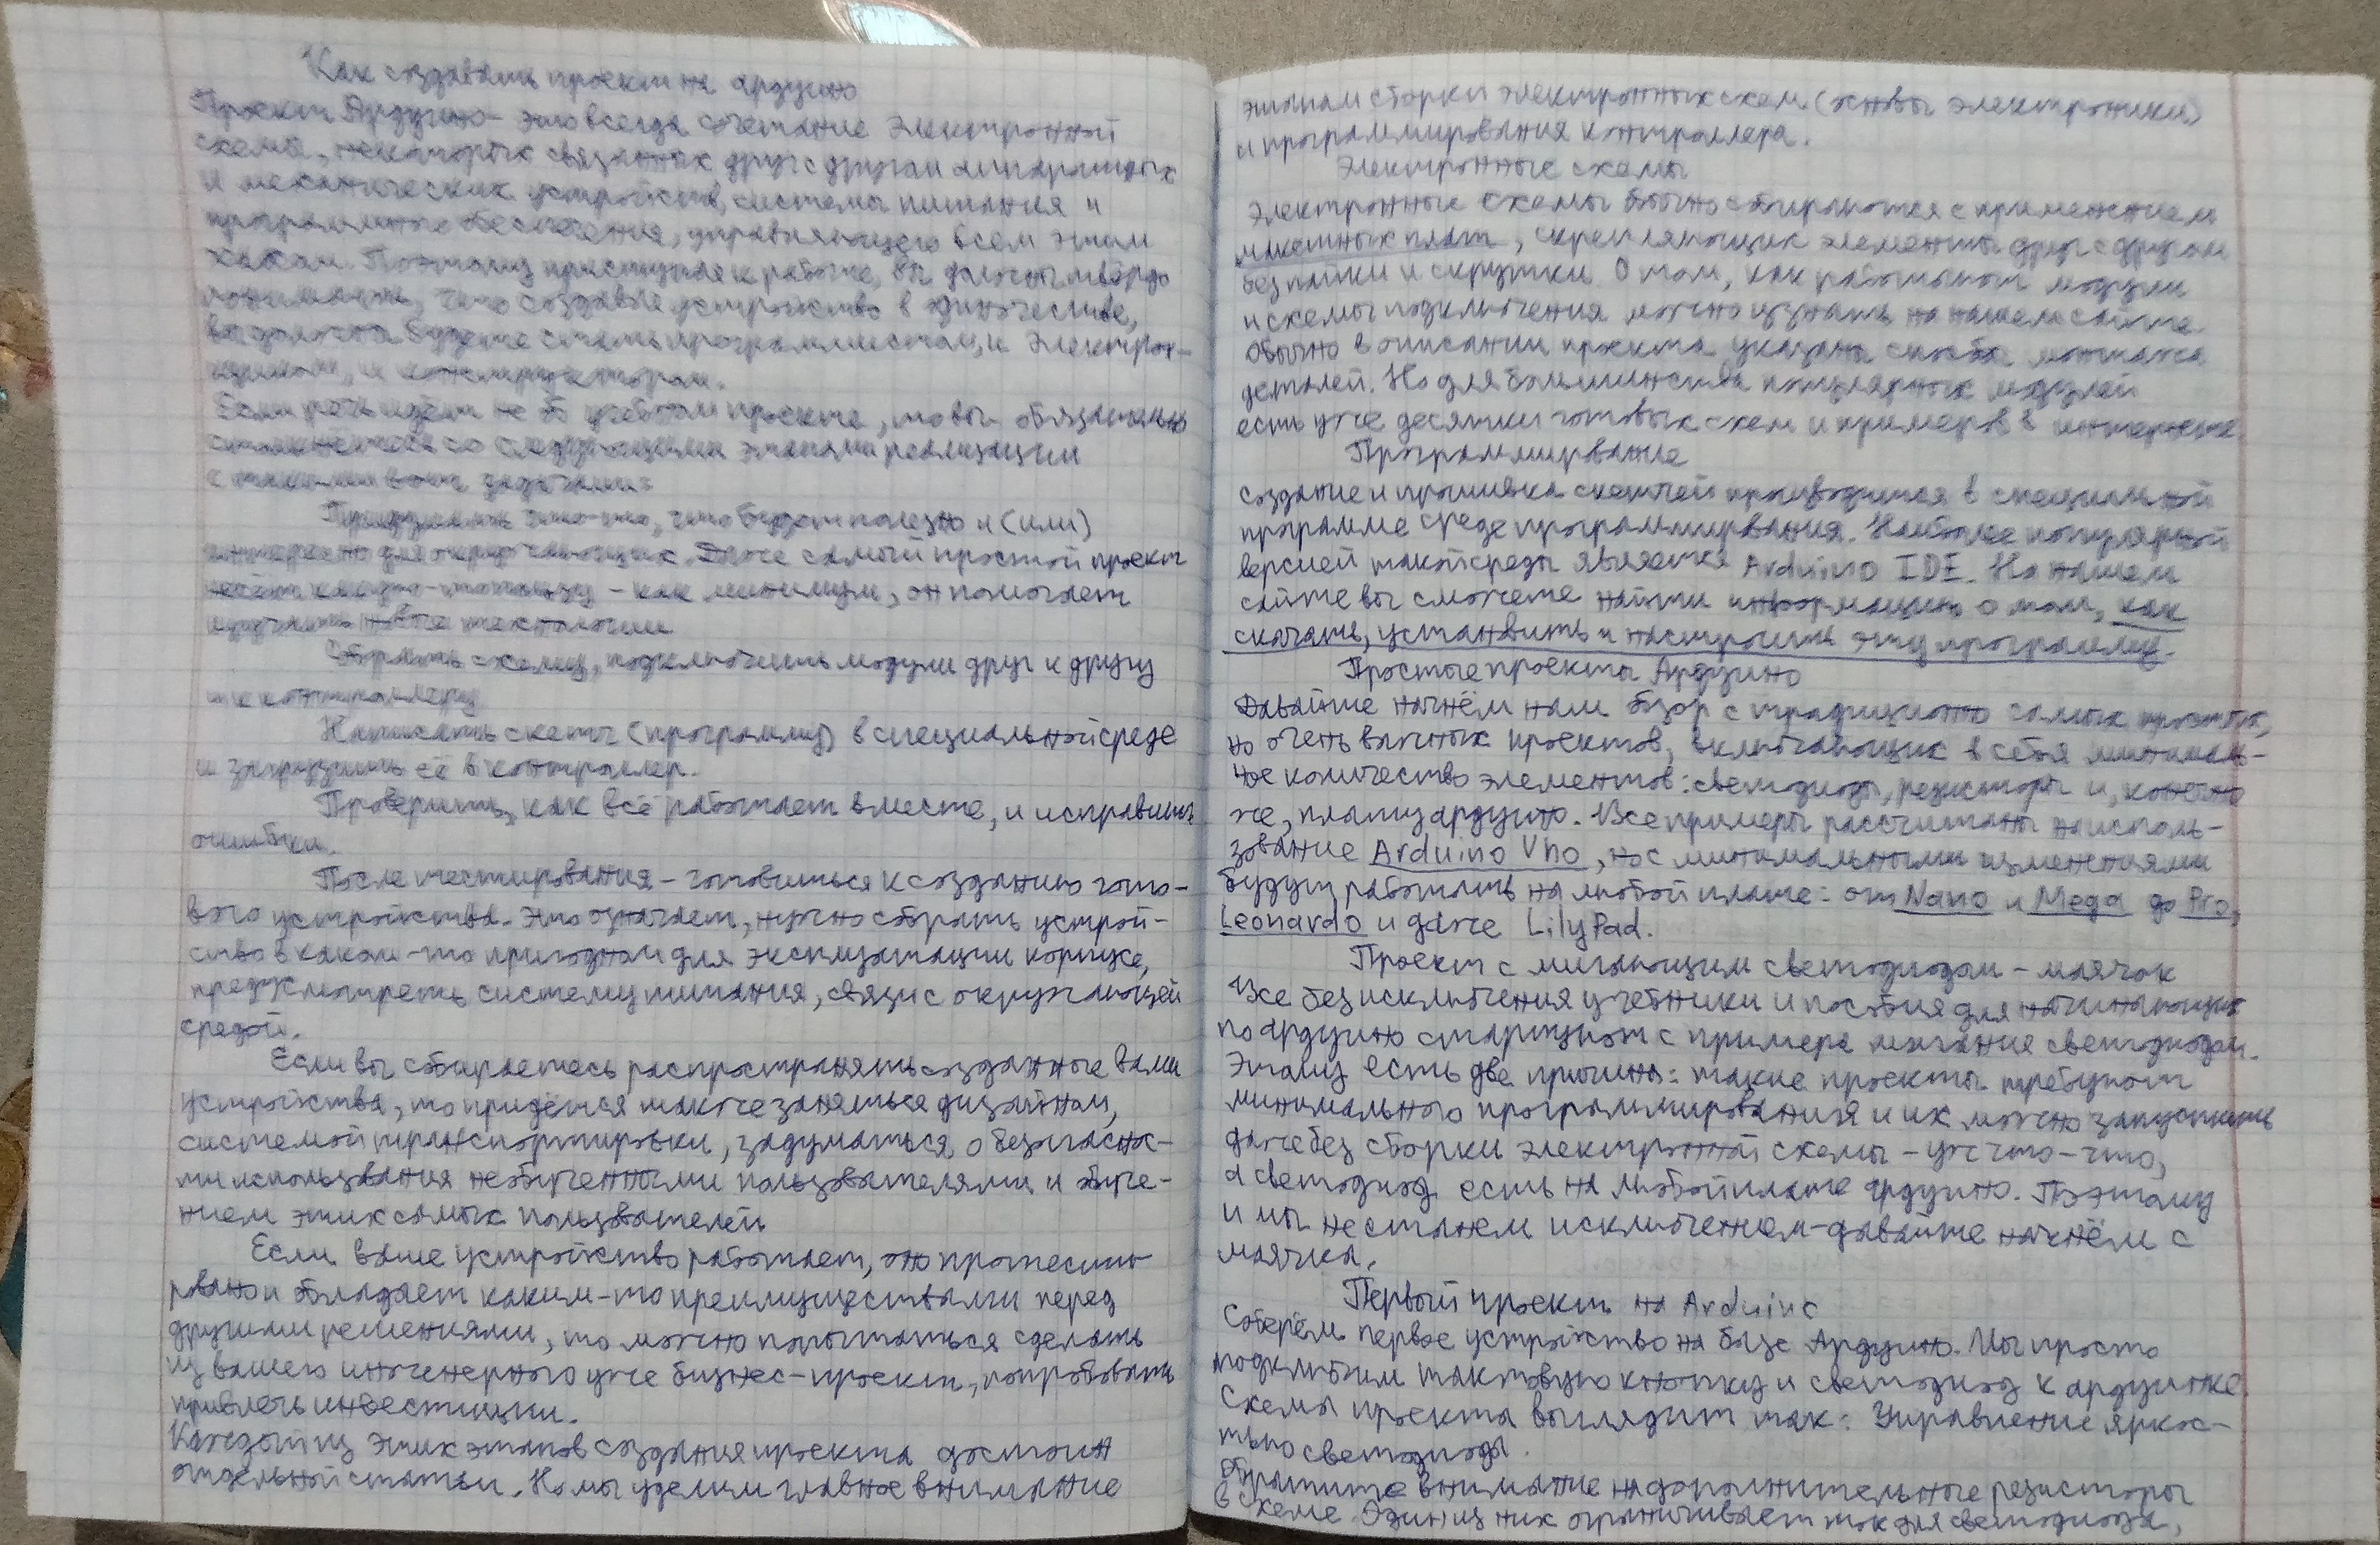 Как создавать проект на ардуино
Проект Ардуино - это всегда сочетание электронной
схемы, некоторых связанных друг с другом аппаратных
и механических устройств, системы питания и
программного обеспечения, управляющего всем этим
хаосом. Поэтому приступая к работе, вы должны твёрдо
понимать, что создавая устройство в одиночестве,
вы должны будете стать программистом, и электрон-
щиком, и конструктором.
Если речь идёт не об учебном проекте, то вы обязательно
столкнётесь со следующими этапами реализации
с такими вот задачами:
Придумать что-то, что будет полезно и (или)
интересно для окружающих. Даже самый простой проект
несёт какую-то пользу - как минимум, он помогает
изучать новые технологии
Собрать схему, подключить модули друг к другу
и к контроллеру
Написать скетч (программу) в специальной среде
и загрузить её в контроллер.
Проверить, как всё работает вместе, и исправить
ошибки.
После тестирования - готовиться к созданию гото-
вого устройства. Это означает, нужно собрать устрой-
ство в каком-то пригодном для эксплуатации корпусе,
предусмотреть систему питания, связи с окружающей
средой.
Если вы собираетесь распространять созданные вами
устройства, то придётся также заняться дизайном,
системой транспортировки, задуматься о безопаснос-
ти использования необученными пользователями и обуче-
нием этих самых пользователей
Если ваше устройство работает, оно протести-
ровано и обладает каким-то преимуществами перед
другими решениями, то можно попытаться сделать
из вашего инженерного уже бизнес-проект, попробовать
привлечь инвестиции.
Каждый из этих этапов создания проекта достоин
отдельной статьи. Но мы уделим главное внимание
этапам сборки электронных схем (основы электроники)
и программирования контроллера.
Электронные схемы
Электронные схемы обычно собираются с применением
макетных плат, скрепляющих элементы друг с другом
без пайки и скрутки. О том, как работают модули
и схемы подключения можно узнать на нашем сайте.
Обычно в описании проекта указаны способы монтажа
деталей. Но для большинства популярных модулей
есть уже десятки готовых схем и примеров в интернете
Программирование
Создание и прошивка скетчей производится в специальной
программе среде программирования. Наиболее популярной
версией такой среды является Arduino IDE. На нашем
сайте вы сможете найти информацию о том, как
скачать, установить и настроить эту программу.
Простые проекты Ардуино
Давайте начнём наш обзор с традиционно самых простых,
но очень важных проектов, включающих в себя минималь-
ное количество элементов: светодиоды, резисторы и, конечно
же, плату ардуино. Все примеры рассчитаны на исполь-
зование Arduino Uno, но с минимальными изменениями
будут работать на любой плате: от Nano и Mega до Pro,
Leonardo и даже LilyPad.
Проект с мигающим светодиодом - маячок
Все без исключения учебники и пособия для начинающих
по ардуино стартуют с примера мигания светодиодом.
Этому есть две причины: такие проекты требуют
минимального программирования и их можно запустить
даже без сборки электронной схемы - уж что-что,
а светодиод есть на любой плате ардуино. Поэтому
и мы не станем исключением - давайте начнём с
маячка.
Первый проект на Arduino
Соберём первое устройство на базе Ардуино. Мы просто
подключим тактовую кнопку и светодиод к ардуинке.
Схемы проекта выглядит так: Управление яркос-
тью светодиода.
Обратите внимание на дополнительные резисторы
в схеме. Один из них ограничивает ток для светодиода,